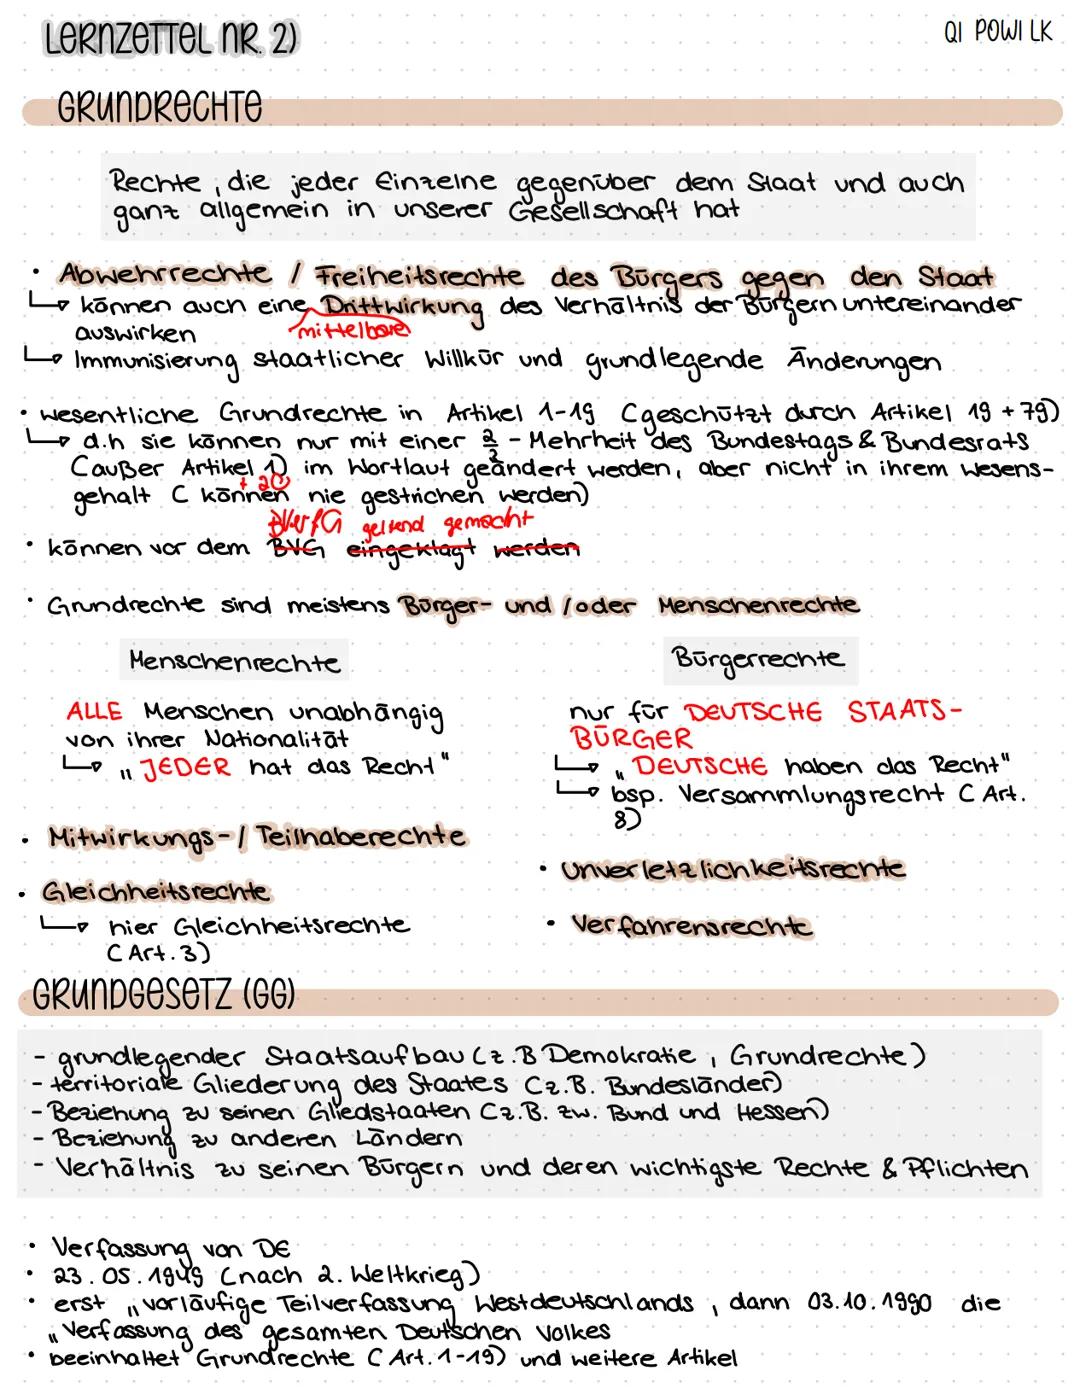 LERNZETTEL NR. 2)
Q1 POWI LK
GRUNDRECHTE
Rechte, die jeder Einzelne gegenüber dem Staat und auch
ganz allgemein in unserer Gesellschaft hat
• Abwehrrechte / Freiheitsrechte des Bürgers gegen den Staat
↳ können auch eine Drittwirkung des Verhältnis der Bürgern untereinander
auswirken
mittelbare
↳ Immunisierung staatlicher Willkür und grundlegende Änderungen
• wesentliche Grundrechte in Artikel 1-19 (geschützt durch Artikel 19 + 79)
↳ d.h sie können nur mit einer 2/3 - Mehrheit des Bundestags & Bundesrats
(außer Artikel 1) im Wortlaut geändert werden, aber nicht in ihrem Wesens-
+ 20
gehalt (können nie gestrichen werden)
BVerfG geltend gemacht
• können vor dem BVG eingeklagt werden
• Grundrechte sind meistens Bürger- und / oder Menschenrechte
Menschenrechte
ALLE Menschen unabhängig
von ihrer Nationalität
↳ „JEDER hat das Recht"
Bürgerrechte
nur für DEUTSCHE STAATS-
BÜRGER
↳ „DEUTSCHE haben das Recht"
↳ bsp. Versammlungsrecht (Art.
8)
• Mitwirkungs- / Teilhaberechte
• Gleichheitsrechte
↳ hier Gleichheitsrechte
(Art. 3)
• Unverletzlichkeitsrechte
• Verfahrensrechte
GRUNDGESETZ (GG)
- grundlegender Staatsaufbau (z.B Demokratie, Grundrechte)
- territoriale Gliederung des Staates (z.B. Bundesländer)
- Beziehung zu seinen Gliedstaaten (z.B. zw. Bund und Hessen)
- Beziehung zu anderen Ländern
- Verhältnis zu seinen Bürgern und deren wichtigste Rechte & Pflichten
• Verfassung von DE
• 23.05.1949 (nach 2. Weltkrieg)
• erst „vorläufige Teilverfassung Westdeutschlands, dann 03.10.1990 die
„Verfassung des gesamten Deutschen Volkes
• beeinhaltet Grundrechte (Art. 1-19) und weitere Artikel